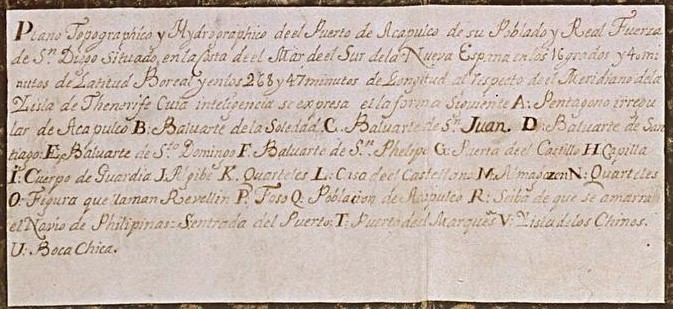 Plano Topographico y Hydrographico de el Puerto de Acapulco de su Poblado y Real Fuerza
de Sn. Diego Situado, en la Costa de el Mar de el Sur de la Nueva España en los 16 grados y 40 mi
nutos de Latitud Boreal y en los 268 y 47 minutos de Longitud al respecto de el Meridiano de la
Ysla de Thenerife Cuia inteligencia se expresa en la forma Siguiente A: Pentagono irregu
lar de Acapulco B: Baluarte de la Soledad, C. Baluarte de Sn. Juan. D: Baluarte de San
tiago: E, Baluarte de Sto. Domingo F. Baluarte de Sn. Phelipe G: Puerta de el Castillo H Capilla
I: Cuerpo de Guardia J. Algibe K. Quarteles L: Casa de el Castellano M. Almagazen N: Quarteles
O: Figura que llaman Revellin: P: Foso Q: Poblacion de Acapulco R: Seiba de que se amarra
el Navio de Philipinas: S entrada del Puerto: T: Puerto de el Marques V: Ysla de los Chinos.
U: Boca Chica.